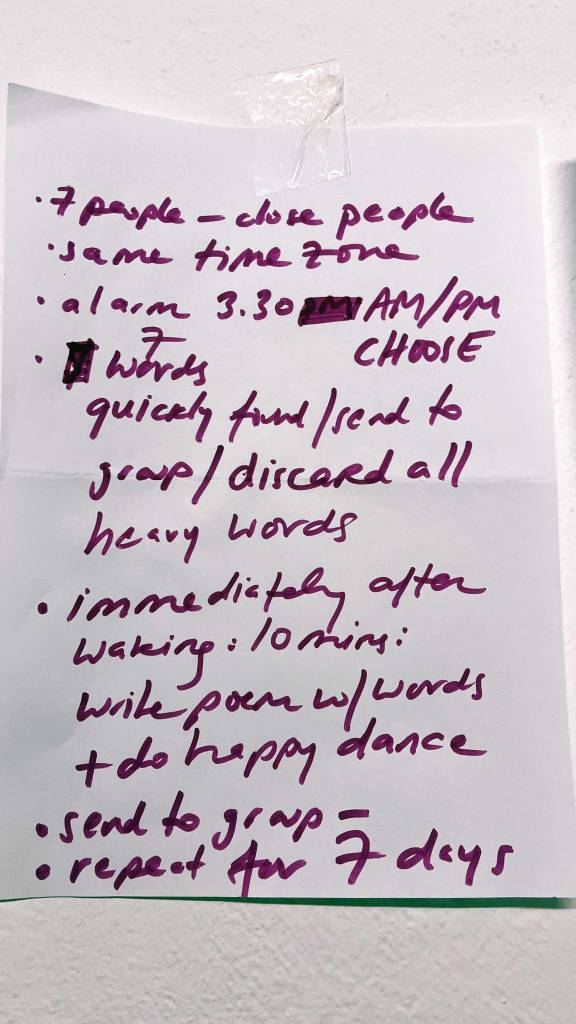 · 7 people – close people
· same time zone
· alarm 3.30 AM/PM
CHOOSE
· 7 words
quickly found/send to
group/discard all
heavy words
· immediately after
waking: 10 mins:
write poem w/words
+ do happy dance
· send to group –
· repeat for 7 days